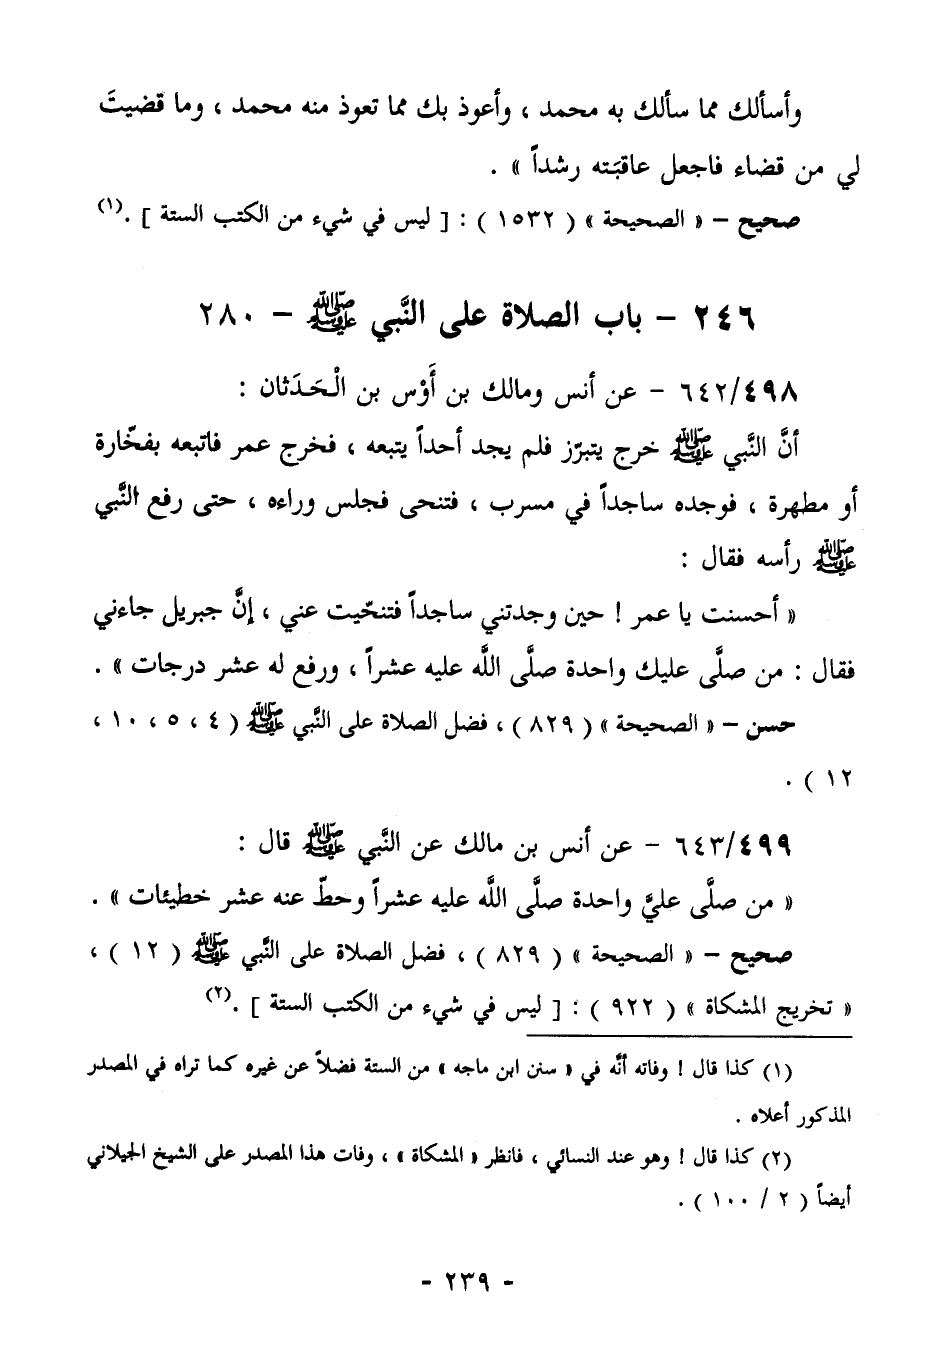 وأسألك مما سألك به محمد ، وأعوذ بك مما تعوذ منه محمد ، وما قضيتَ
لي من قضاء فاجعل عاقبَته رشداً » .
صحيح – « الصحيحة » ( ١٥٣٢ ) : [ ليس في شيء من الكتب الستة ] .(١)
٢٤٦ – باب الصلاة على النَّبي ﷺ – ٢٨٠
٦٤٢/٤٩٨ – عن أنس ومالك بن أَوْس بن الْحَدَثان :
أنَّ النَّبي ﷺ خرج يتبرّز فلم يجد أحداً يتبعه ، فخرج عمر فاتبعه بفخّارة
أو مطهرة ، فوجده ساجداً في مسرب ، فتنحى فجلس وراءه ، حتى رفع النَّبي
ﷺ رأسه فقال :
« أحسنت يا عمر ! حين وجدتني ساجداً فتنحّيت عني ، إنَّ جبريل جاءني
فقال : من صلَّى عليك واحدة صلَّى اللَّه عليه عشراً ، ورفع له عشر درجات » .
حسن – « الصحيحة » ( ٨٢٩ ) ، فضل الصلاة على النَّبي ﷺ ( ٤ ، ٥ ، ١٠ ،
١٢ ) .
٦٤٣/٤٩٩ – عن أنس بن مالك عن النَّبي ﷺ قال :
« من صلَّى عليَّ واحدة صلَّى اللَّه عليه عشراً وحطّ عنه عشر خطيئات » .
صحيح – « الصحيحة » ( ٨٢٩ ) ، فضل الصلاة على النَّبي ﷺ ( ١٢ ) ،
« تخريج المشكاة » ( ٩٢٢ ) : [ ليس في شيء من الكتب الستة ] .(٢)
(١) كذا قال ! وفاته أنَّه في « سنن ابن ماجه » من الستة فضلاً عن غيره كما تراه في المصدر
المذكور أعلاه .
(٢) كذا قال ! وهو عند النسائي ، فانظر « المشكاة » ، وفات هذا المصدر على الشيخ الجيلاني
أيضاً ( ٢ / ١٠٠ ) .
- ٢٣٩ -